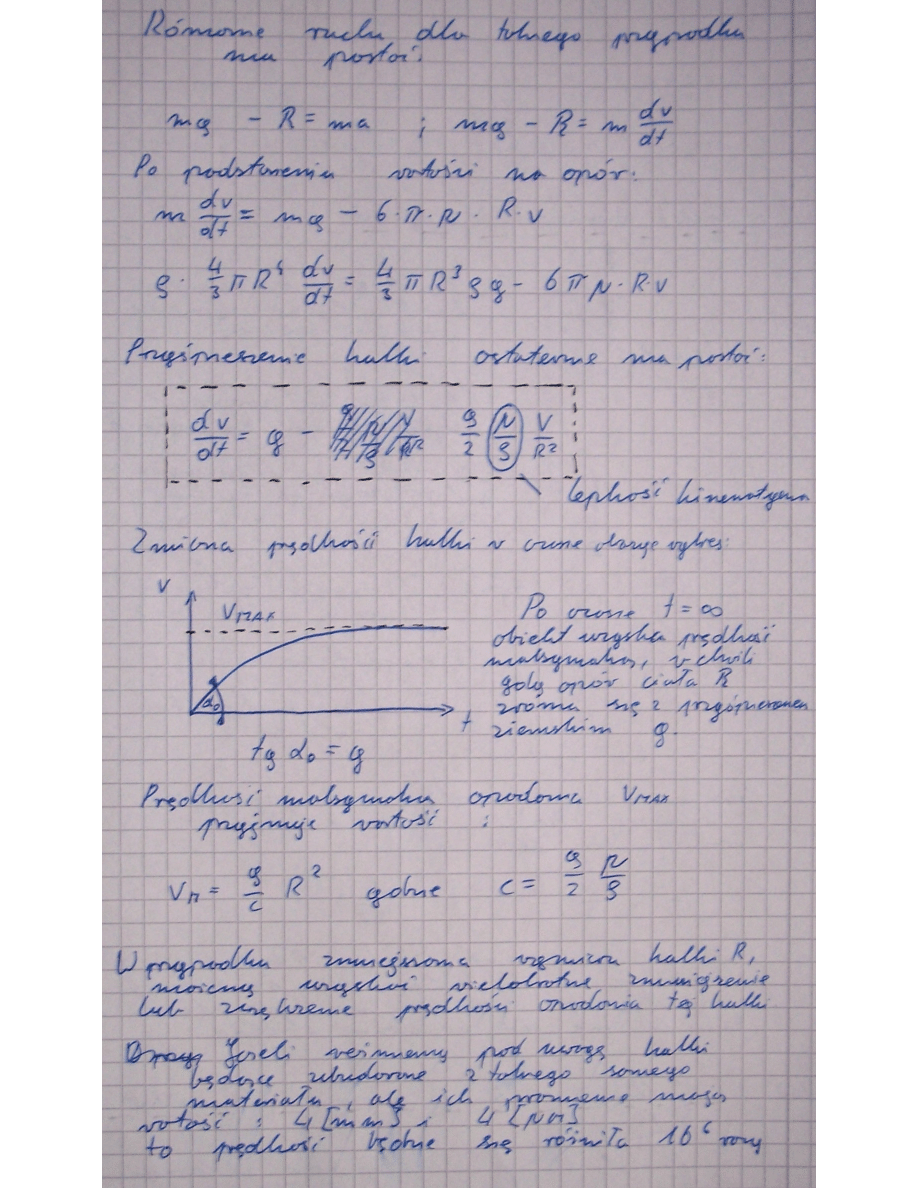 Równanie ruchu dla takiego przypadku
ma postać:
mg - R = ma ; mg - R = m dv/dt
Po podstawieniu wartości na opór:
m dv/dt = mg - 6·π·μ · R·v
ρ · 4/3 π R⁴ dv/dt = 4/3 π R³ ρ g - 6 π μ · R·v
Przyśpieszenie kulki ostatecznie ma postać:
dv/dt = g - 9/2 μ/ρ v/R²
lepkość kinematyczna
Zmianę prędkości kulki w czasie ukazuje wykres:
V
V MAX
α₀
t
tg α₀ = g
Po czasie t = ∞
obiekt uzyska prędkość
maksymalną, w chwili
gdy opór ciała R
zrówna się z przyśpieszeniem
ziemskim g.
Prędkość maksymalna opadania V MAX
przyjmuje wartość :
V M = g/c R² gdzie c = 9/2 μ/ρ
W przypadku zmniejszania wymiaru kulki R,
możemy uzyskać wielokrotne zmniejszenie
lub zwiększenie prędkości opadania tej kulki
Jeżeli weźmiemy pod uwagę kulki
będące zbudowane z takiego samego
materiału, ale ich promienie mają
wartość : 4 [mm] i 4 [μm]
to prędkość będzie się różniła 10⁶ razy